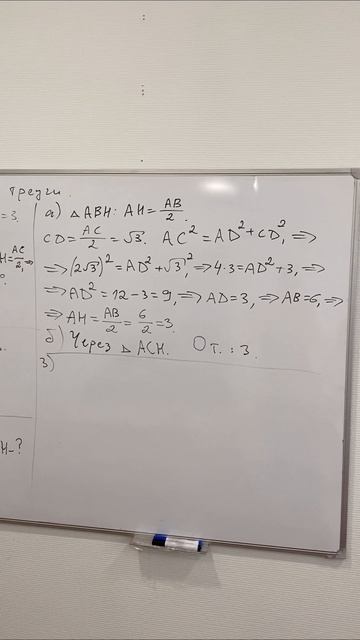 треуг.
= 3.
H = AC/2, ⇒
?
H - ?
а) △ABH: AH = AB/2.
CD = AC/2 = √3. AC² = AD² + CD², ⇒
⇒ (2√3)² = AD² + √3)², ⇒ 4·3 = AD² + 3, ⇒
⇒ AD² = 12 - 3 = 9, ⇒ AD = 3, ⇒ AB = 6, ⇒
⇒ AH = AB/2 = 6/2 = 3.
б) Через △ ACH. От.: 3.
3)